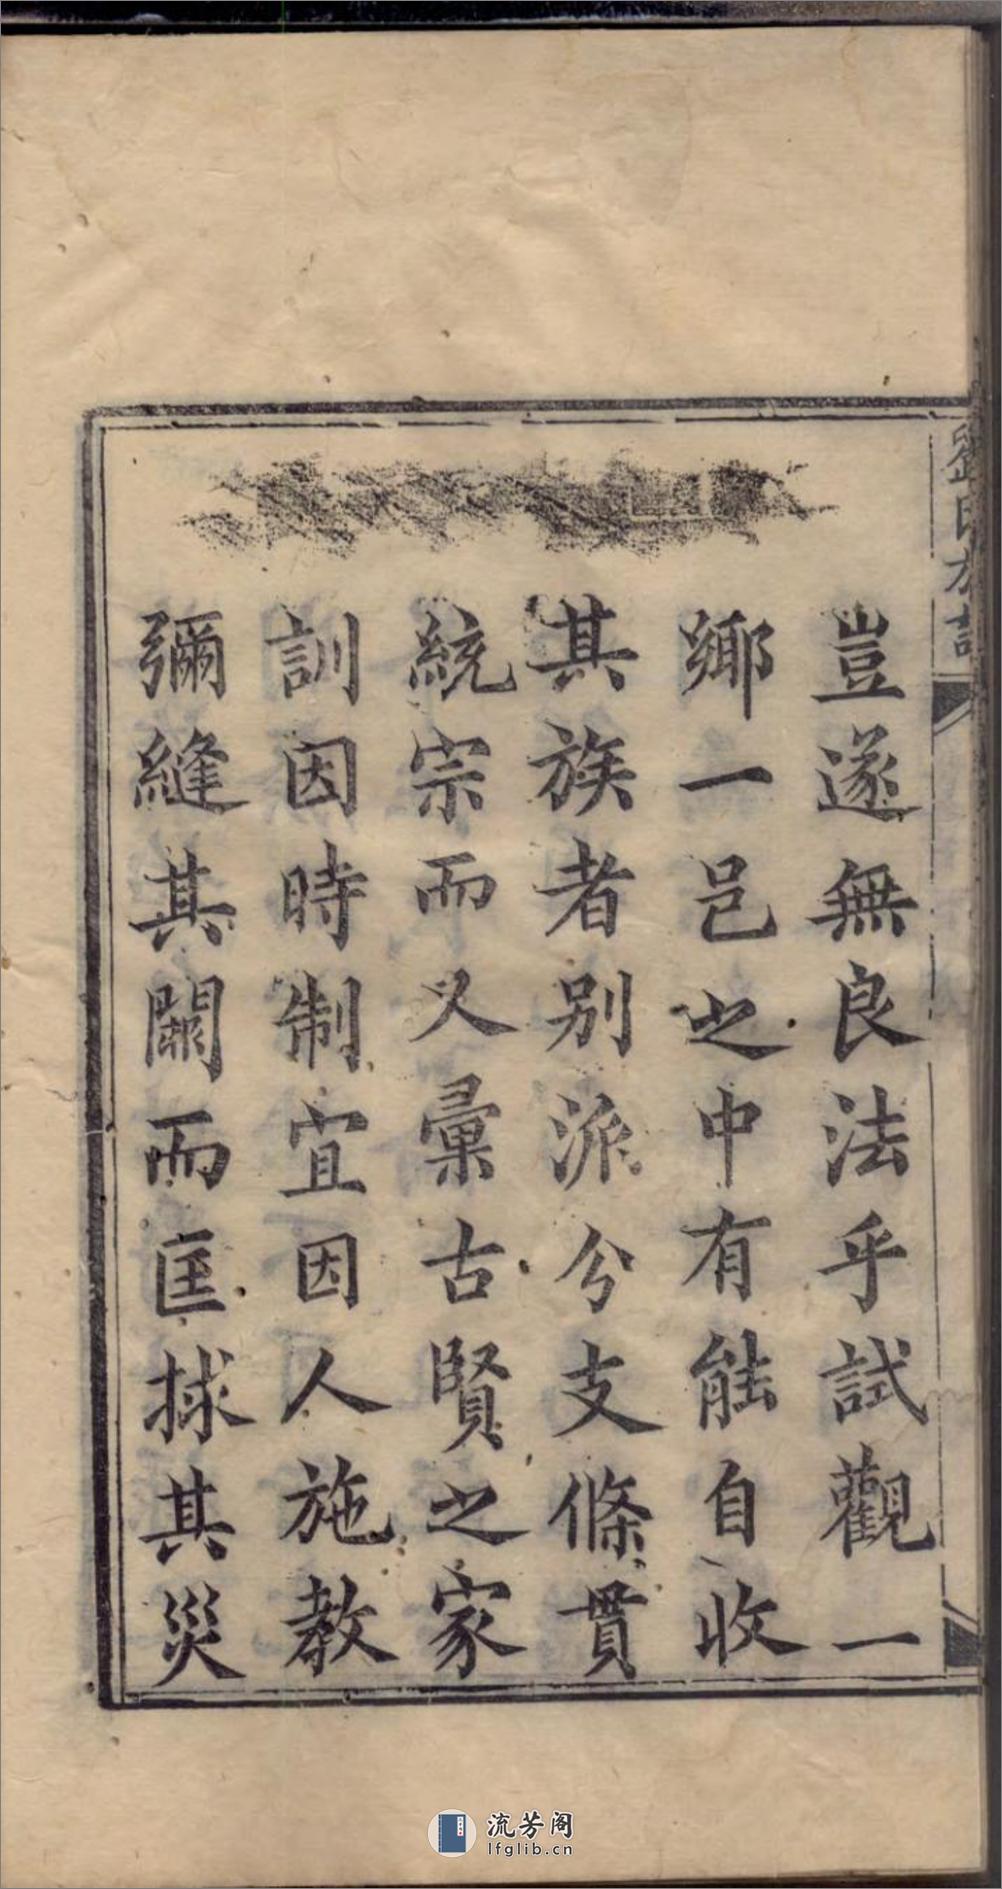 豈遂無良法乎試觀一
鄉一邑之中有能自收
其族者別派分支條貫
統宗而又彙古賢之家
訓因時制宜因人施教
彌縫其闕而匡捄其災
劉氏族譜
流芳阁
lfglib.cn